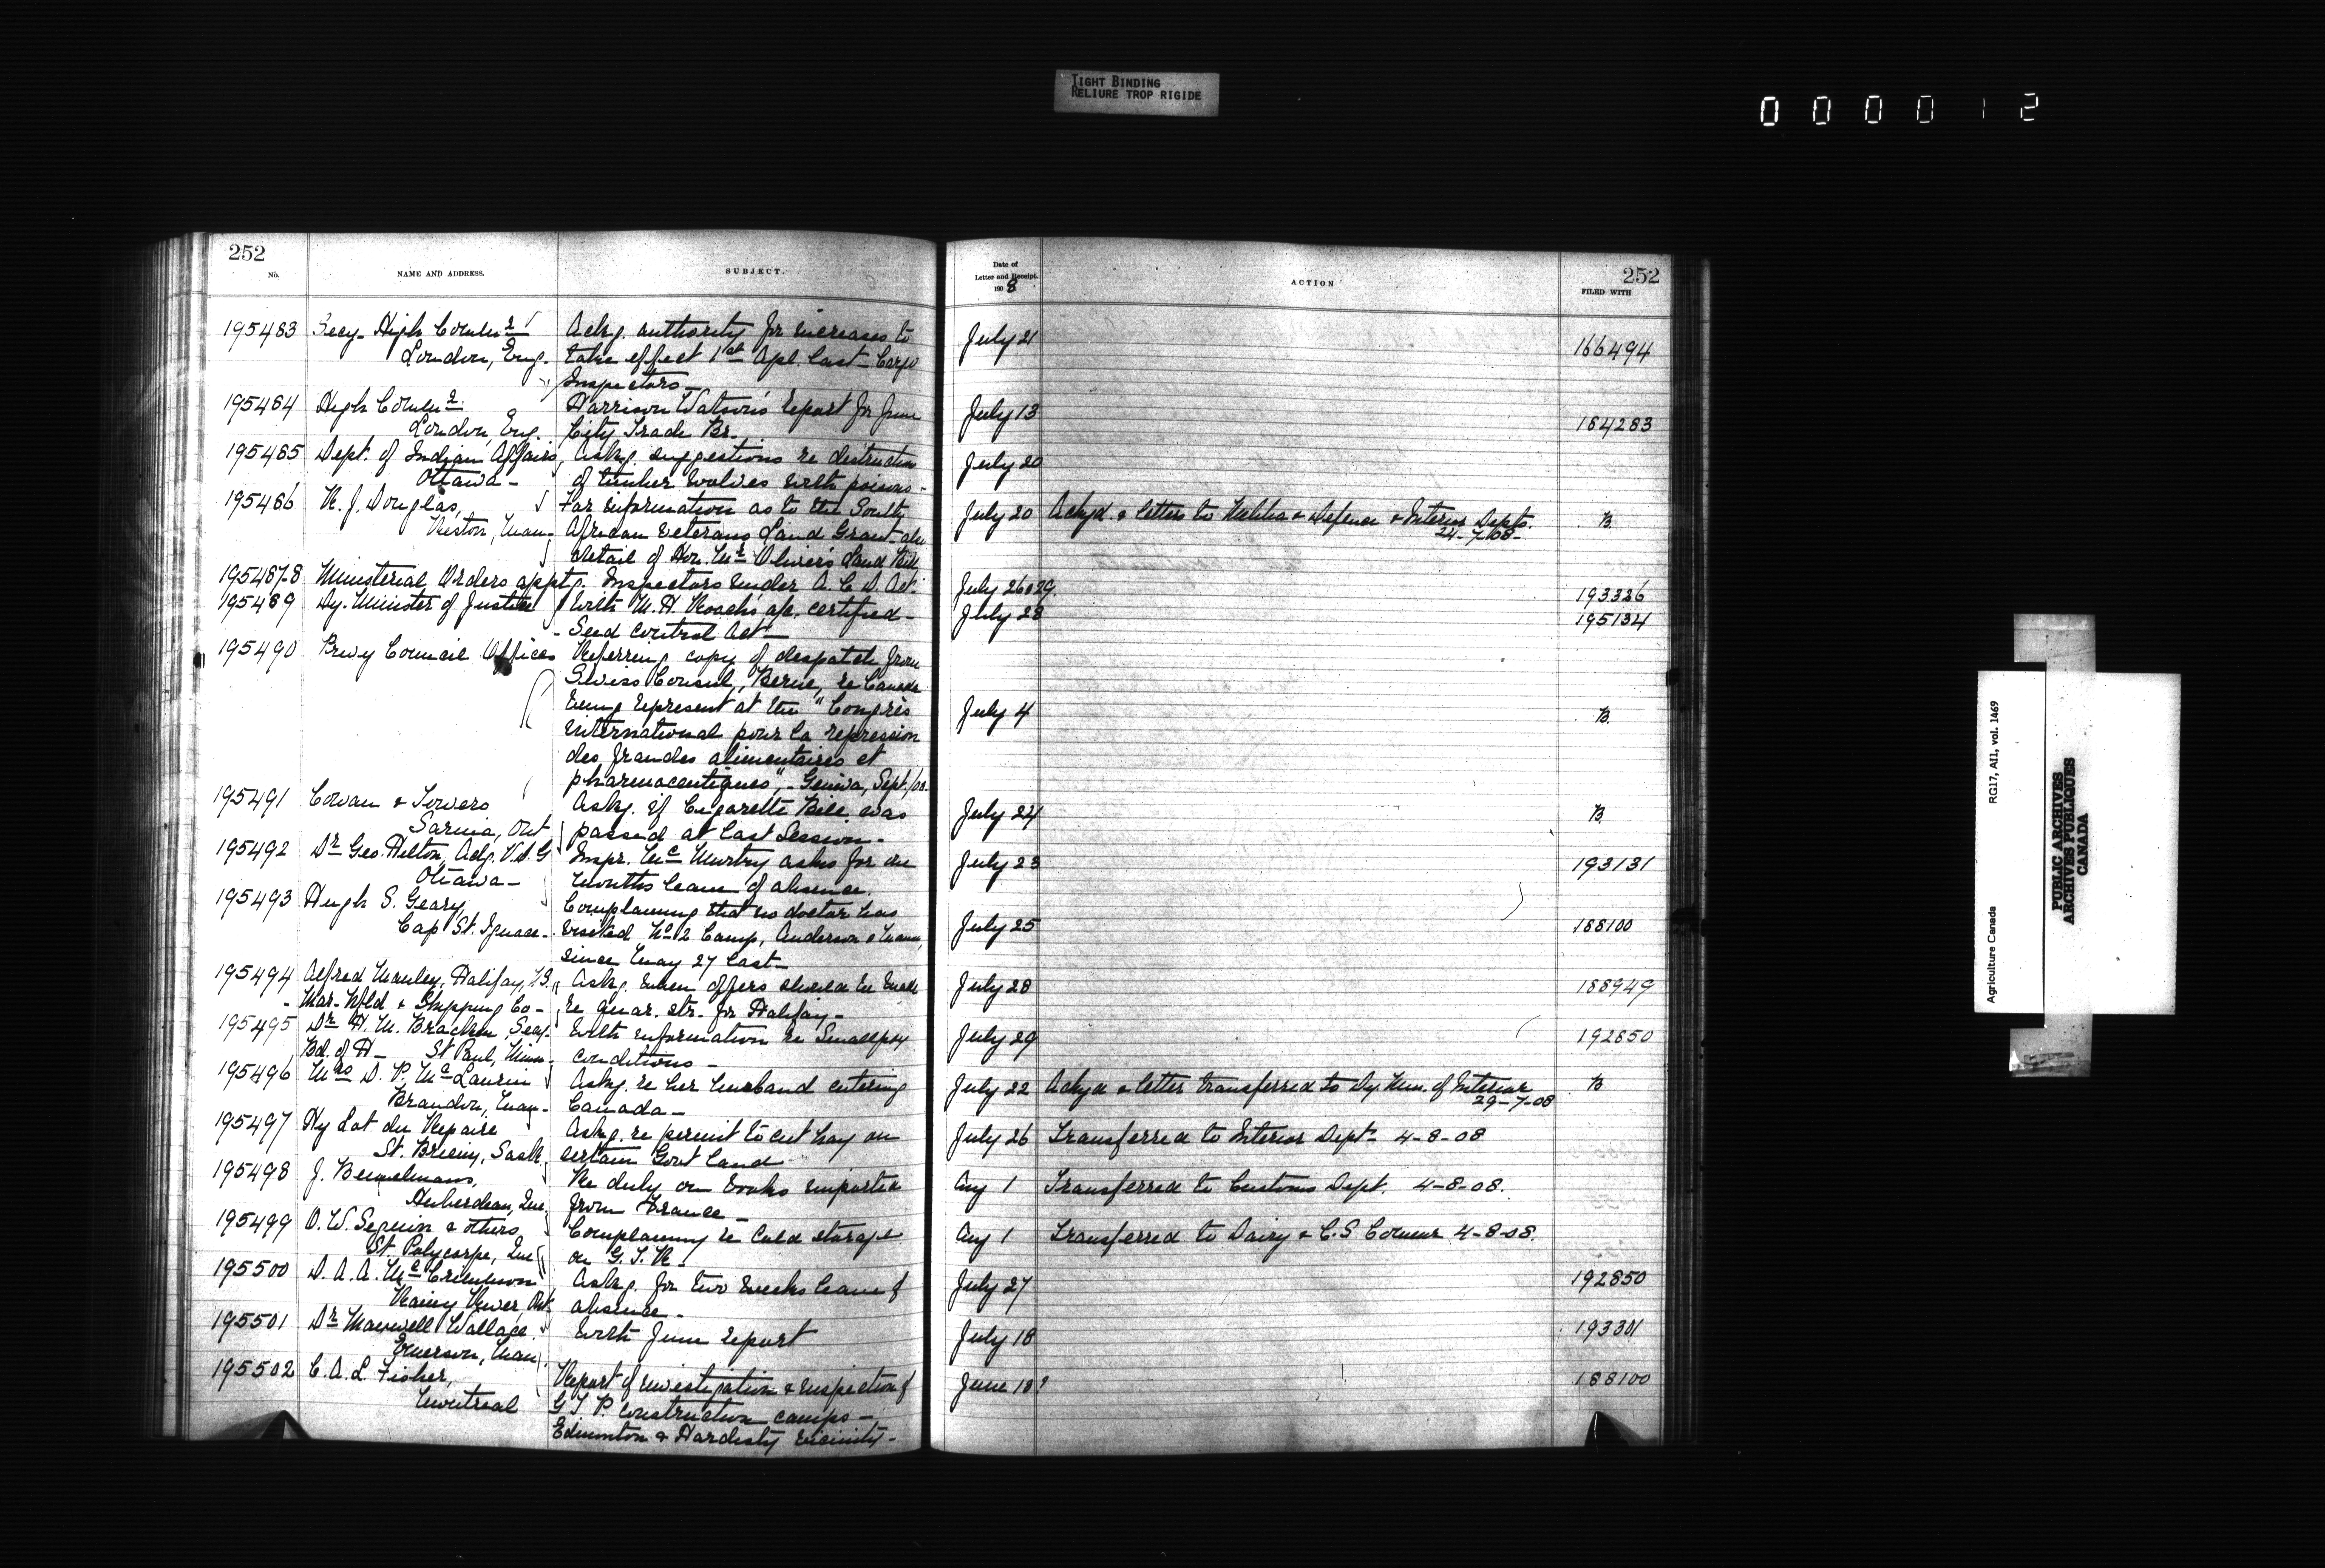 TIGHT BINDING
RELIURE TROP RIGIDE
000012
252
No.
NAME AND ADDRESS.
SUBJECT.
Date of
Letter and Receipt.
190 8
ACTION
252
FILED WITH
195483 Secy. High Commr Ackg. authority for increases to July 21 166494
London, Eng. take effect 1st Apl. last - Cargo
Inspectors -
195484 High Commr Harrison Watson's report for June July 13 184283
London, Eng. City Trade Br.
195485 Dept. of Indian Affairs, Askg. suggestions re destruction July 20
Ottawa - of timber wolves with poisons -
195486 R. J. Douglas, For information as to the South July 20 Ackgd. & letters to Militia & Defence & Interior Depts. B.
24-7-08-
Reston, Man. African Veterans Land Grant - also
detail of Hon. Mr Oliver's Land Bill
195487-8 Ministerial Orders apptg. Inspectors under A. C. D. Act. July 26 & 29. 193326
195489 Dy. Minister of Justice With M. H. Roach's a/c. certified - July 28 195134
Seed Control Act -
195490 Privy Council Offices Referring copy of despatch from
Swiss Consul, Berne, re Canada
being represent at the "Congrès July 4 B.
international pour la repression
des fraudes alimentaires et
pharmaceutiques", - Geneva, Sept./08.
195491 Cowan & Towers Askg. if Cigarette Bill was July 24 B.
Sarnia, Ont passed at last Session -
195492 Dr Geo. Hilton, Actg. V.D.G Inspr. McMurtry asks for a July 23 193131
Ottawa - months leave of absence.
195493 Hugh S. Geary, Complaining that no doctor has
Cap St. Ignace - visited No 2 Camp, Anderson & July 25 188100
since May 27 last -
195494 Alfred Manley, Halifax, N.S. Askg. when offers should be made July 28 188949
- Mar. Nfld & Shipping Co - re quar. str. for Halifax -
195495 Dr H. M. Bracken, Secy. With information re Smallpox July 29 192850
Bd. of H - St Paul, Minn. conditions -
195496 Mrs D. P. McLaurin Askg. re her husband entering July 22 Ackgd & letter transferred to Dy. Min. of Interior B
29-7-08
Brandon, Man - Canada -
195497 Hy Lot du Repaire Askg. re permit to cut hay on July 26 Transferred to Interior Dept - 4-8-08
St. Brieux, Sask. certain Govt land
195498 J. Re duty on books imported Aug 1 Transferred to Customs Dept. 4-8-08.
Que. from France -
195499 O. W. Seguin & others Complaining re Cold storage Aug 1 Transferred to Dairy & C.S Commr 4-8-08.
St. Polycarpe, Que on G. T. R -
195500 D. A. A. McCrimmon Askg. for two weeks leave of July 27 192850
Rainy River, Ont. absence -
195501 Dr Maxwell Wallace With June report July 18 193301
Emerson, Man
195502 C. A. L. Fisher, Report of investigation & inspection of June 18? 188100
Montreal G T P. construction camps -
Edmonton & Hardisty vicinity -
Agriculture Canada RG17, AI1, vol. 1469
PUBLIC ARCHIVES
ARCHIVES PUBLIQUES
CANADA